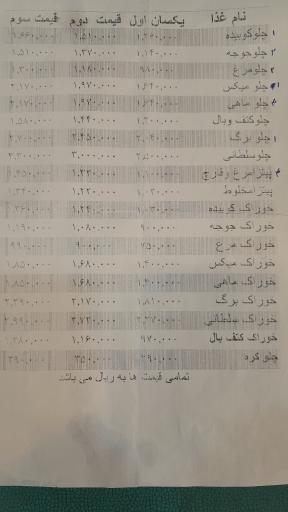 نام غذا یکسان اول قیمت دوم قیمت سوم
چلوکوبیده ۱٬۲۶۰٬۰۰۰ ۱٬۵۱۰٬۰۰۰ ۱٬۶۶۰٬۰۰۰
چلوجوجه ۱٬۱۴۰٬۰۰۰ ۱٬۳۷۰٬۰۰۰ ۱٬۵۱۰٬۰۰۰
چلومرغ ۹۸۰٬۰۰۰ ۱٬۱۸۰٬۰۰۰ ۱٬۳۰۰٬۰۰۰
چلو میکس ۱٬۶۴۰٬۰۰۰ ۱٬۹۷۰٬۰۰۰ ۲٬۱۷۰٬۰۰۰
چلو ماهی ۱٬۶۴۰٬۰۰۰ ۱٬۹۷۰٬۰۰۰ ۲٬۱۷۰٬۰۰۰
چلوکتف وبال ۱٬۲۰۰٬۰۰۰ ۱٬۴۴۰٬۰۰۰ ۱٬۵۸۰٬۰۰۰
چلو برگ ۲٬۰۴۰٬۰۰۰ ۲٬۴۵۰٬۰۰۰ ۲٬۷۰۰٬۰۰۰
چلوسلطانی ۲٬۵۰۰٬۰۰۰ ۳٬۰۰۰٬۰۰۰ ۳٬۳۰۰٬۰۰۰
پیتزامرغ وقارچ ۱٬۱۰۰٬۰۰۰ ۱٬۳۲۰٬۰۰۰ ۱٬۴۵۰٬۰۰۰
پیتزامخلوط ۱٬۲۲۰٬۰۰۰ ۱٬۳۴۰٬۰۰۰
خوراک کوبیده ۱٬۰۳۰٬۰۰۰ ۱٬۲۴۰٬۰۰۰ ۱٬۳۶۰٬۰۰۰
خوراک جوجه ۹۰۰٬۰۰۰ ۱٬۰۸۰٬۰۰۰ ۱٬۱۹۰٬۰۰۰
خوراک مرغ ۷۵۰٬۰۰۰ ۹۰۰٬۰۰۰ ۹۹۰٬۰۰۰
خوراک میکس ۱٬۴۰۰٬۰۰۰ ۱٬۶۸۰٬۰۰۰ ۱٬۸۵۰٬۰۰۰
خوراک ماهی ۱٬۴۰۰٬۰۰۰ ۱٬۶۸۰٬۰۰۰ ۱٬۸۵۰٬۰۰۰
خوراک برگ ۱٬۸۱۰٬۰۰۰ ۲٬۱۷۰٬۰۰۰ ۲٬۳۹۰٬۰۰۰
خوراک سلطانی ۲٬۲۷۰٬۰۰۰ ۲٬۷۲۰٬۰۰۰ ۲٬۹۹۰٬۰۰۰
خوراک کتف بال ۹۷۰٬۰۰۰ ۱٬۱۶۰٬۰۰۰ ۱٬۲۸۰٬۰۰۰
چلوکره ۲۹۰٬۰۰۰ ۳۵۰٬۰۰۰ ۳۹۰٬۰۰۰
تمامی قیمت ها به ریال می باشد